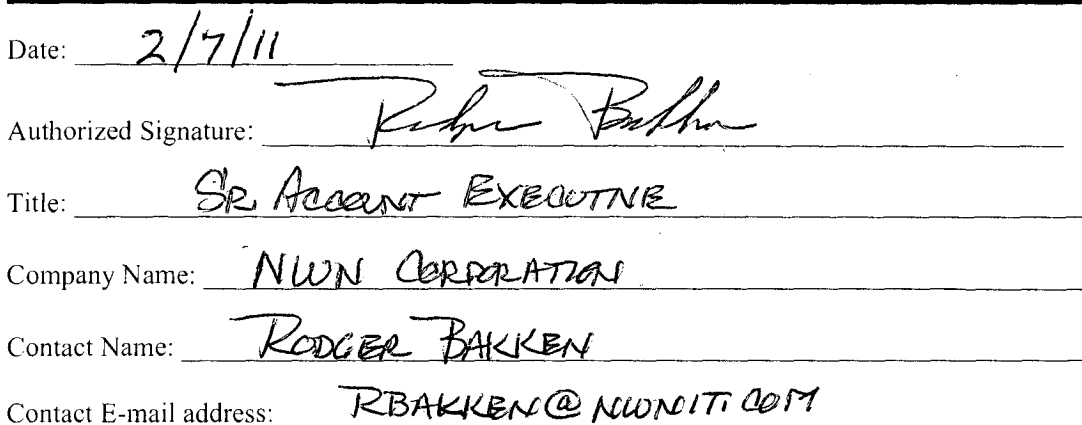 Date: 2/7/11
Authorized Signature: Rodger Bakken
Title: SR. ACCOUNT EXECUTIVE
Company Name: NWN CORPORATION
Contact Name: RODGER BAKKEN
Contact E-mail address: RBAKKEN@NWNIT.COM